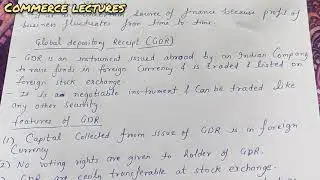 Commerce lectures
source of finance because profit of
business fluctuates from time to time.
Global depository Receipt (GDR)
- GDR is an instrument issued abroad by an Indian Company
to raise funds in foreign Currency & is traded & listed on
foreign stock exchange
- It is a negotiable instrument & Can be traded like
any other Security.
features of GDR
(1) Capital Collected from issue of GDR is in foreign
Currency
2) No voting rights are given to holder of GDR.
GDR are easily transferable at stock exchange.